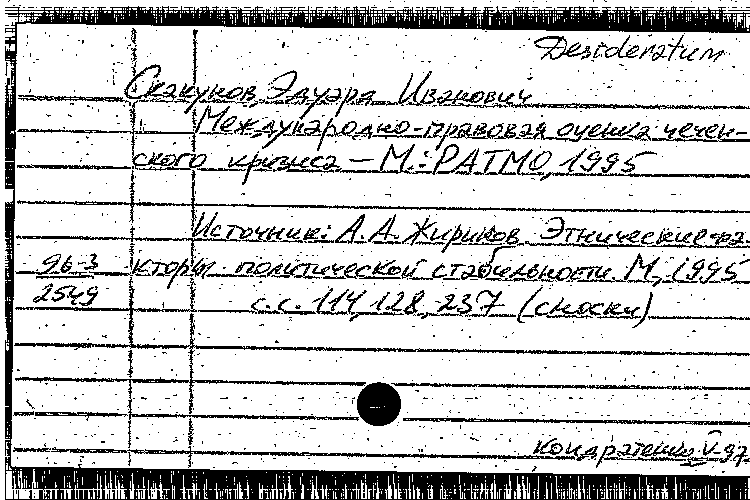 Desideratum
Скакунов Эдуард Иванович
Международно-правовая оценка чечен-
ского кризиса – М.: РАТМО, 1995
Источник: А. А. Жириков. Этнические фа-
96-3 кторы политической стабильности. М, 1995
2549 с.с. 114, 128, 237 (сноски)
V-97